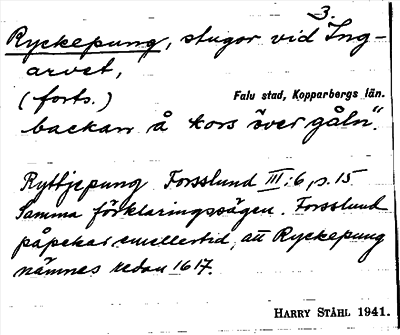 3.
Ryckepung, stugor vid Ing-
arvet,
(forts.) Falu stad, Kopparbergs län.
backan å kors över gåln".
Ryttjepung Forsslund III:6, s. 15
Samma förklaringssägen. Forsslund
påpekar emellertid, att Ryckepung
nämnes redan 1617.
HARRY STÅHL 1941.